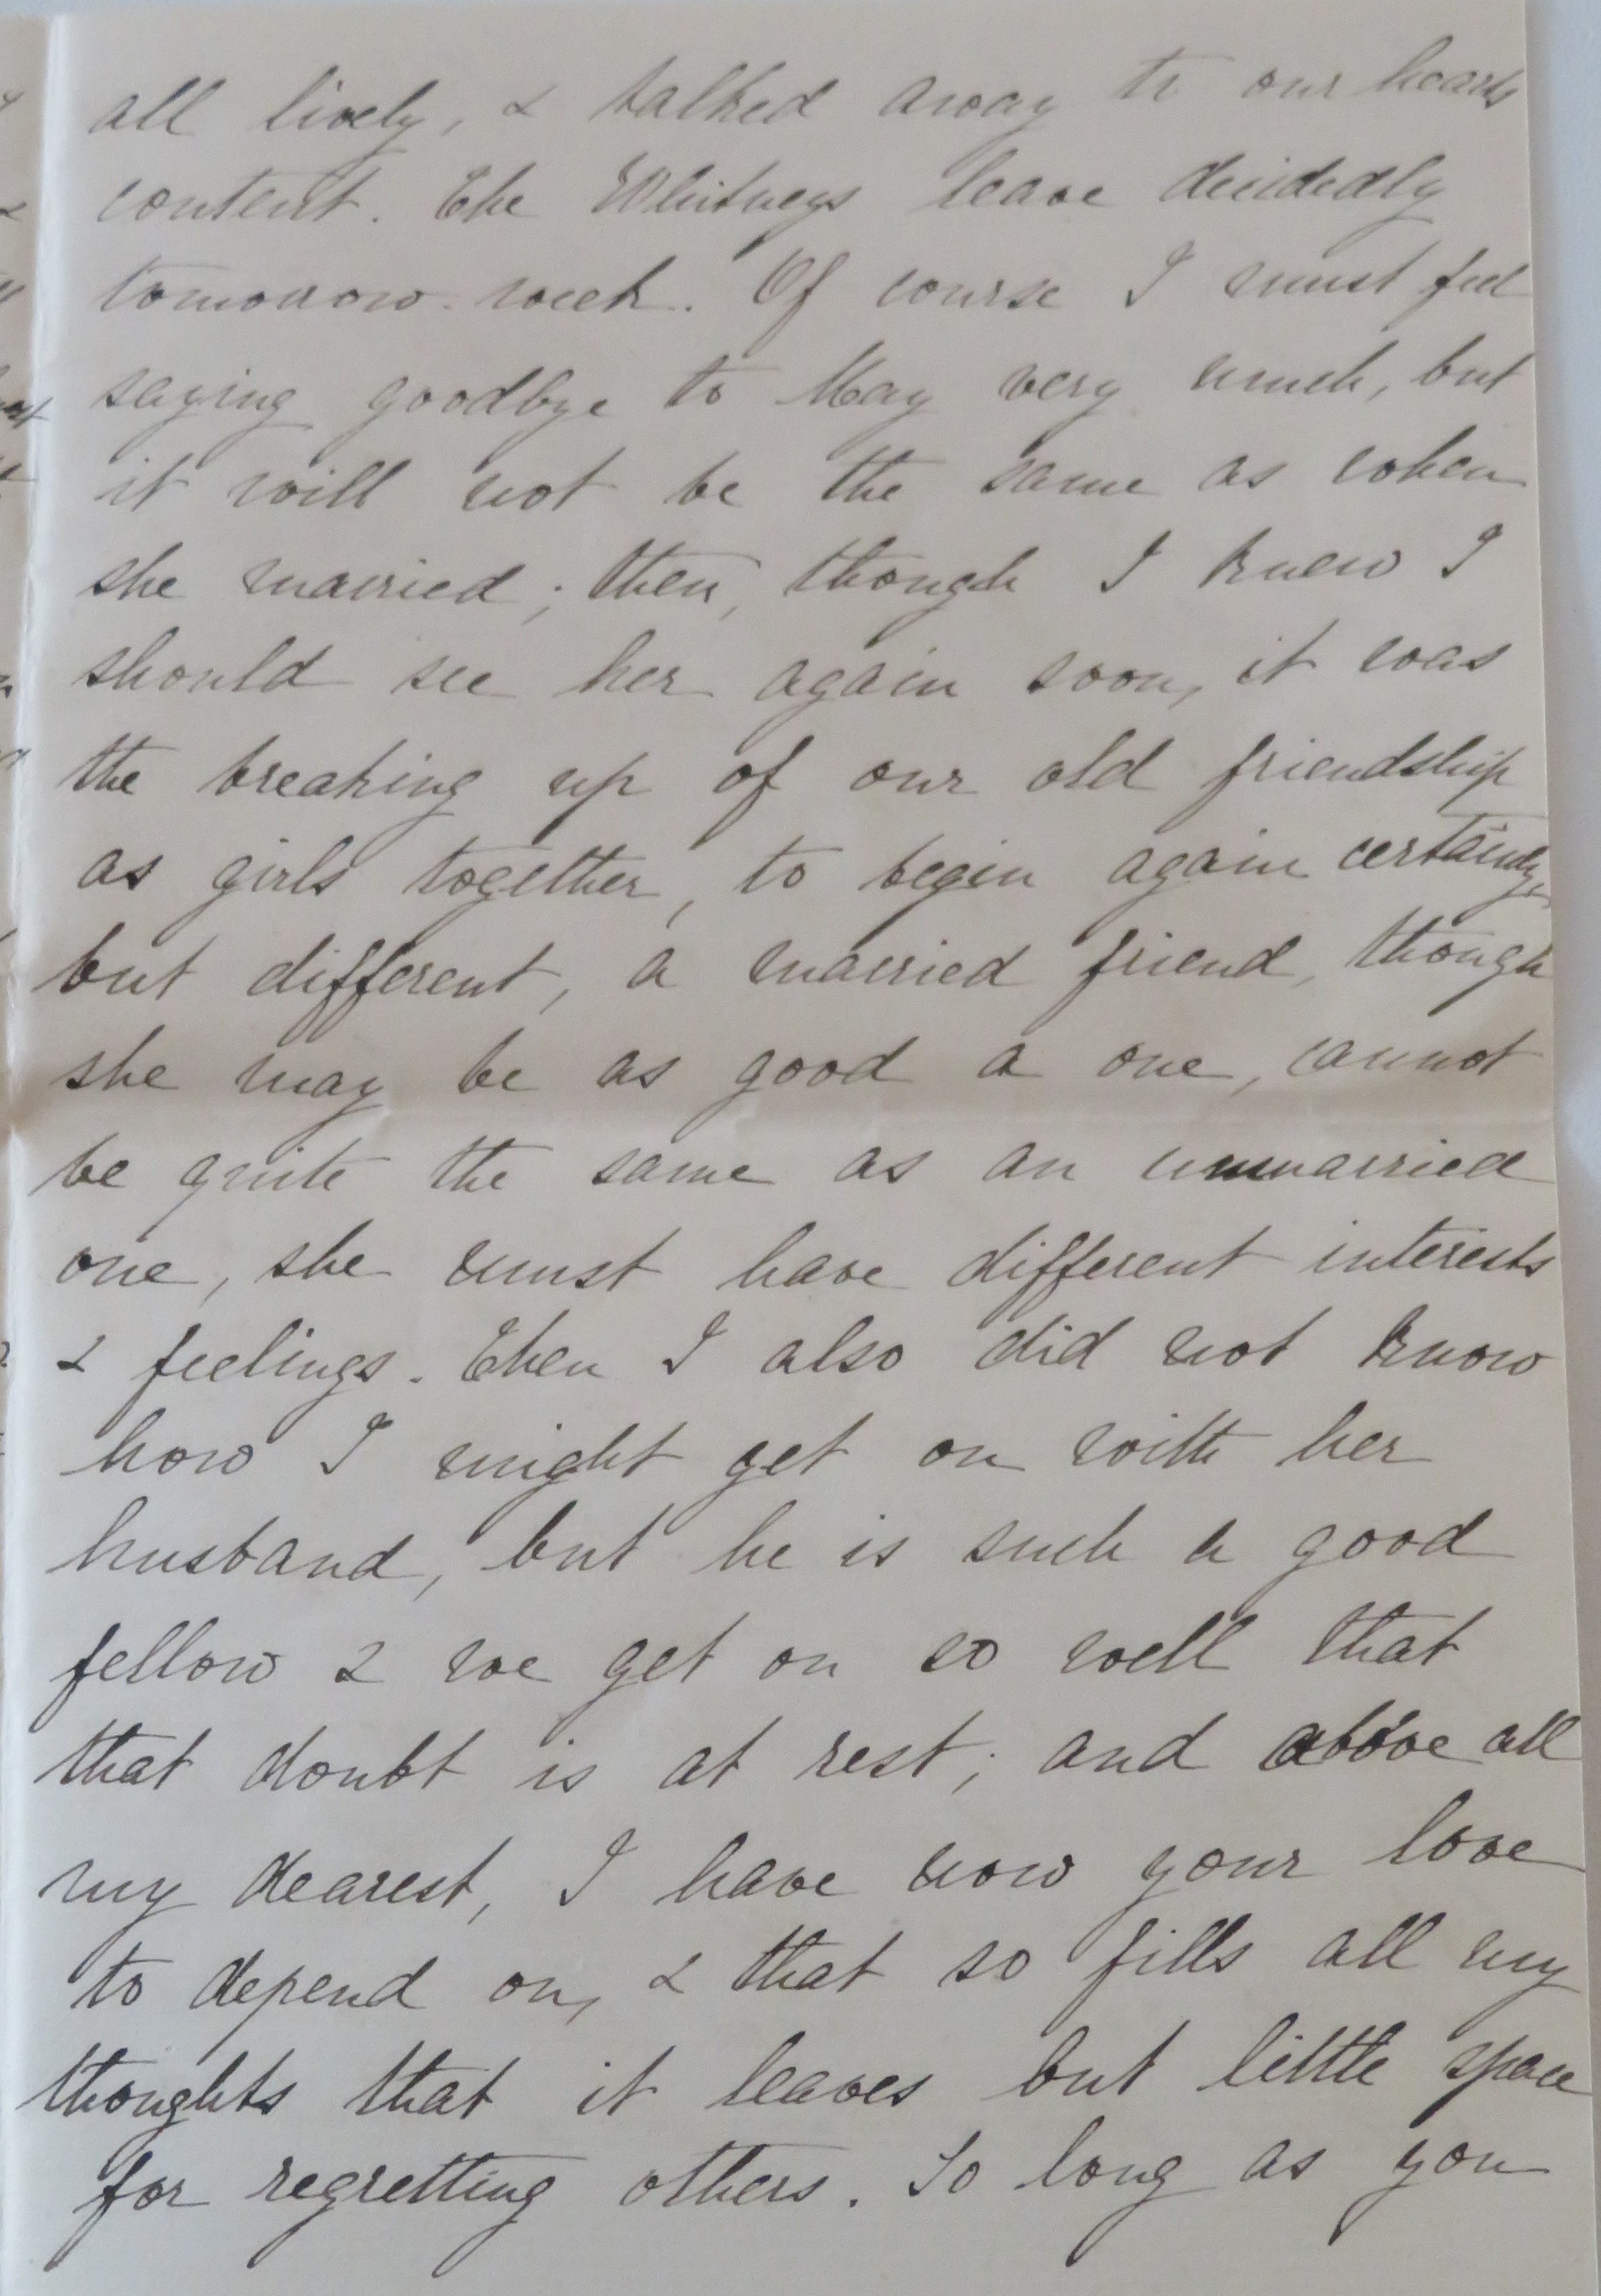 all lively, & talked away to our hearts
content. The Whitneys leave decidedly
tomorrow week. Of course I must feel
saying goodbye to May very much, but
it will not be the same as when
she married; then, though I knew I
should see her again soon, it was
the breaking up of our old friendship
as girls together, to begin again certainly,
but different, a married friend, though
she may be as good a one, cannot
be quite the same as an unmarried
one, she must have different interests
& feelings. Then I also did not know
how I might get on with her
husband, but he is such a good
fellow & we get on so well that
that doubt is at rest; and above all
my dearest, I have now your love
to depend on, & that so fills all my
thoughts that it leaves but little space
for regretting others. So long as you